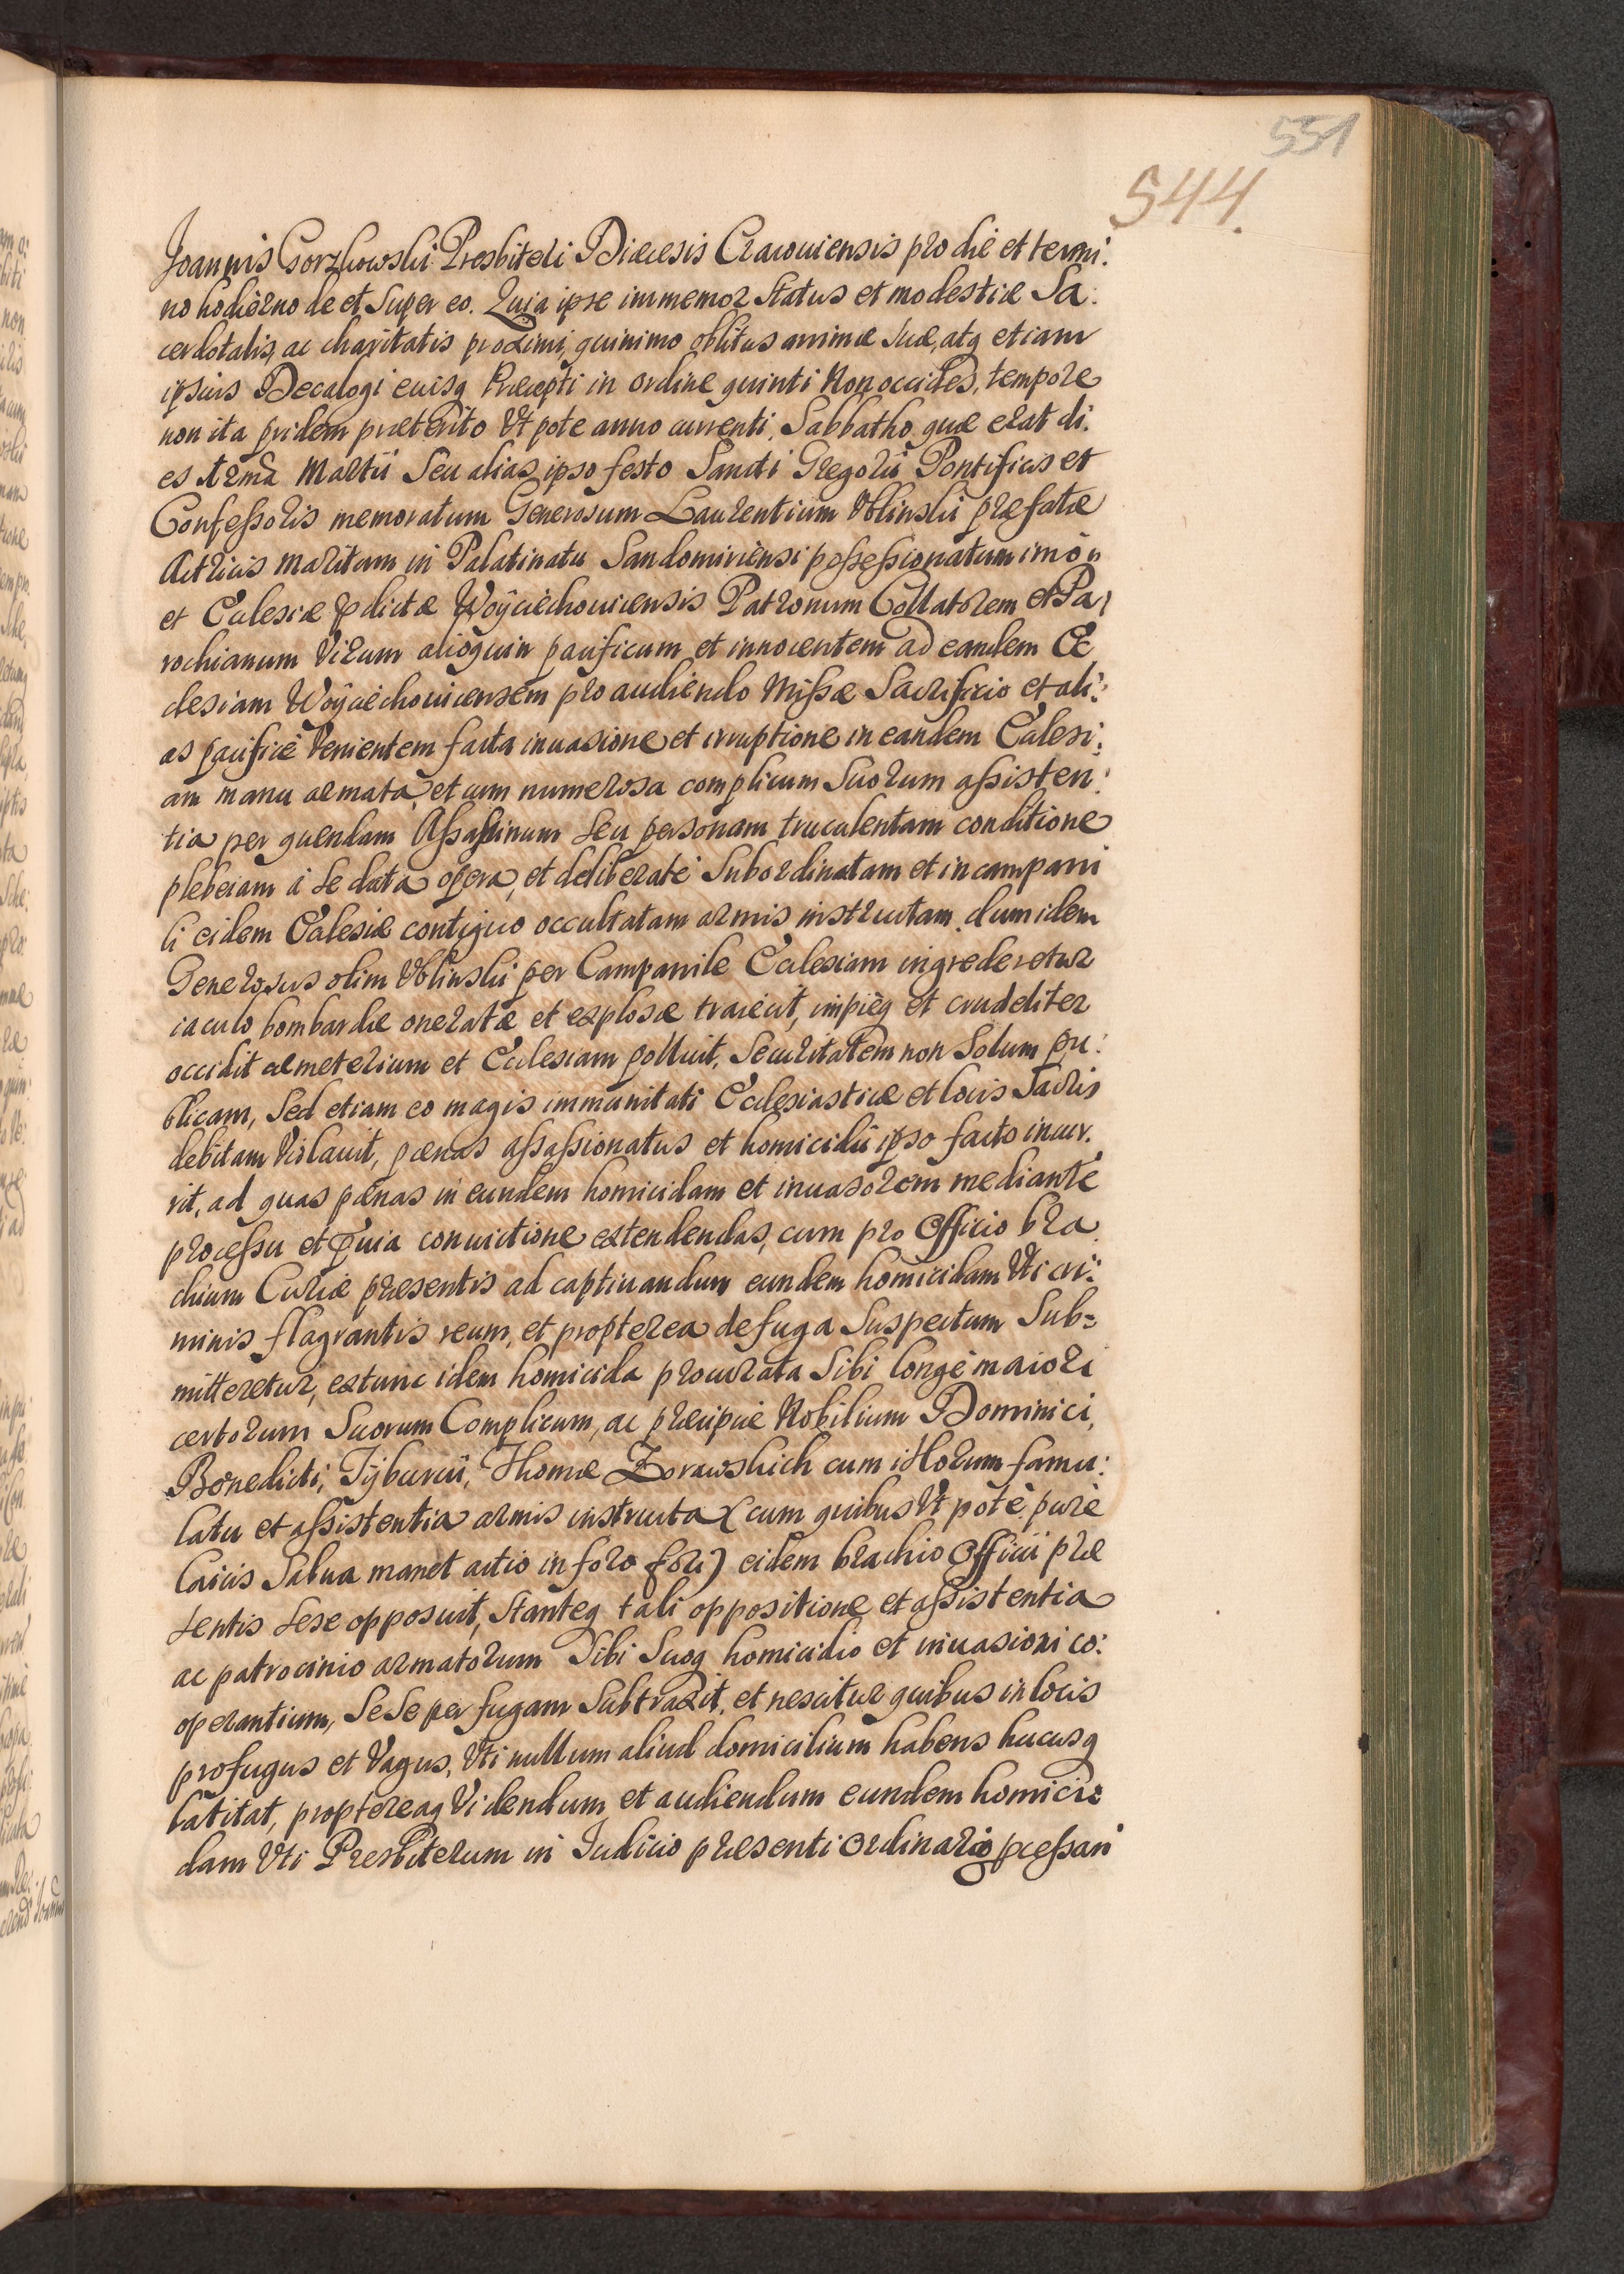 551
544.
Joannis Gorzkowski Presbiteri Diæcesis Cracouiensis pro die et termi:
no hodierno de et Super eo. Quia ipse immemor Status et modestiæ Sa:
cerdotalis, ac charitatis proximi, quinimo oblitus animæ Suæ, atq etiam
ipsius Decalogi euisq Præcepti in ordine quinti Non occides, tempore
non ita pridem præterito Vt pote anno currenti, Sabbatho, quæ erat di:
es Martii Seu alias ipso festo Sancti Gregorii Pontificis et
Confessoris memoratum Generosum Laurentium Vblinski præfatæ
Actricis maritum in Palatinatu Sandomiriensi possessionatum imò
et Ecclesiæ pdictæ Woÿciechouicensis Patronum Collatorem et Pa:
rochianum Virum alioquin pacificum et innocentem ad eandem Ec
clesiam Woÿciechouicensem pro audiendo Missæ Sacrificio et ali:
as pacificè Venientem facta inuasione et irruptione in eandem Ecclesi:
am manu armata, et cum numerosa complicum Suorum assisten:
tia per quendam Assassinum Seu personam truculentam conditione
plebeiam à Se data opera, et deliberatè Subordinatam et in campani
li eidem Ecclesiæ contiguo occultatam armis instructam, dum idem
Generosus olim Vblinski per Campanile Ecclesiam ingrederetur
iaculo bombardæ oneratæ et explosæ traiecit, impièq et crudeliter
occidit cæmeterium et Ecclesiam polluit, Securitatem non Solum pu:
blicam, Sed etiam eo magis immunitati Ecclesiasticæ et locis Sacris
debitam Violauit, pænas assassionatus et homicidii ipso facto incur:
rit, ad quas pænas in eundem homicidam et inuasorem mediante
processu et præuia conuictione extendendas, cum pro Officio bra
chium Curiæ præsentis ad captiuandum eundem homicidam Vti cri:
minis flagrantis reum, et propterea de fuga Suspectum Sub=
mitteretur, extunc idem homicida procurata Sibi longè maiori
certorum Suorum Complicum, ac præcipuè Nobilium Dominici,
Benedicti, Tÿburcii, Thomæ Zorawskich cum illorum famu:
latu et assistentia armis instructa (cum quibus Vt potè purè
laicis Salua manet actio in foro fori) eidem brachio Officii præ
sentis Sese opposuit, Stanteq tali oppositione et assistentia
ac patrocinio armatorum Sibi Suoq homicidio et inuasioni co:
operantium, SeSe per fugam Subtraxit, et nescitur quibus in locis
profugus et Vagus, Vti nullum aliud domicilium habens hucusq
latitat, proptereaq Videndum et audiendum eundem homici=
dam Vti Presbiterum in Iudicio præsenti Ordinario